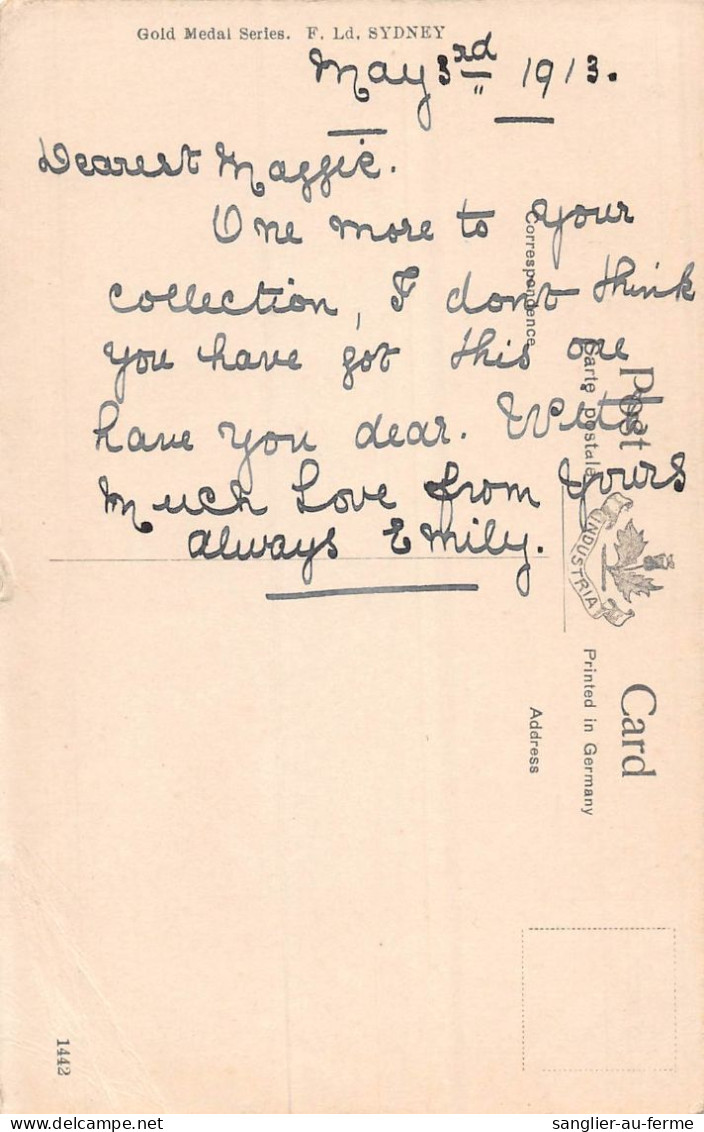 Gold Medal Series. F. Ld. SYDNEY
May 3rd 1913.
Dearest Maggie.
One more to your
collection, I dont think
you have got this one
have you dear. With
Much Love from Yours
always Emily.
Correspondence
Carte postale
Post Card
INDUSTRIA
Printed in Germany
Address
1442
sanglier-au-ferme